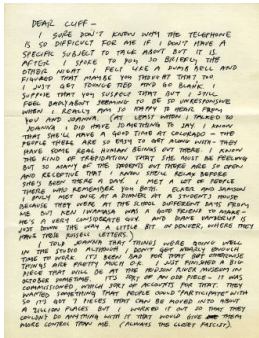 DEAR CLUFF —
I SURE DON'T KNOW WHY THE TELEPHONE
IS SO DIFFICULT FOR ME IF I DON'T HAVE A
SPECIFIC SUBJECT TO TALK ABOUT BUT IT IS.
AFTER I SPOKE TO YOU SO BRIEFLY THE
OTHER NIGHT I FELT LIKE A DUMB BELL AND
FIGURED THAT MAYBE YOU THOUGHT THAT TOO
I JUST GET TONGUE TIED AND GO BLANK. I
SUPPOSE THAT YOU SUSPECT THAT BUT I STILL
FEEL BAD ABOUT SEEMING TO BE SO UNRESPONSIVE
WHEN I REALLY AM SO HAPPY TO HEAR
YOU AND JOANNA. (AT LEAST WHEN I TALKED TO
JOANNA I DID HAVE SOMETHING TO SAY. I KNOW
THAT SHE'LL HAVE A GOOD TIME AT COLORADO
PEOPLE THERE ARE SO EASY TO GET ALONG WITH. THEY
HAVE SOME REAL HUMAN BEINGS OUT THERE. I KNOW
THE KIND OF TREPIDATION THAT SHE MUST BE FEELING
BUT SO MANY OF THE STUDENTS OUT THERE ARE SO OPEN
AND RECEPTIVE THAT I KNOW SHE'LL RELAX BEFORE
SHE'S BEEN THERE A DAY. I MET A LOT OF PEOPLE
THERE WHO REMEMBER YOU BOTH. AND SAMSON
I ONLY MET ONCE AT A DINNER AT A STUDENT'S HOUSE
BECAUSE THEY WERE AT THE SCHOOL DIFFERENT DAYS FROM
ME BUT KEN IWAMASA WAS A GOOD FRIEND TO MAKE—
HE'S A VERY CONSIDERATE GUY. AND IS
JUST DOWN THE WAY A LITTLE BIT IN DENVER, WHERE THEY
MAKE THOSE RUSSELL LETTERS.)
I TOLD JOANNA THAT THINGS WERE GOING WELL
IN THE STUDIO ALTHOUGH I DON'T GET NEARLY ENOUGH
TIME TO WORK. IT'S BEEN BAD FOR THAT BUT OTHERWISE
THINGS ARE PRETTY MUCH O.K. I JUST FINISHED A BIG
PIECE THAT WILL BE AT THE HUDSON RIVER MUSEUM IN
OCTOBER SOMETIME. IT'S SORT OF AN ODD PIECE — IT WAS
COMMISSIONED WHICH SORT OF ACCOUNTS FOR THAT. THEY
WANTED SOMETHING THAT PEOPLE COULD "PARTICIPATE" WITH
SO IT'S GOT 7 PIECES THAT CAN BE MOVED INTO ABOUT
A ZILLION PLACES BUT I WORKED IT OUT SO THAT THEY
COULDN'T DO ANYTHING WITH IT THAT WOULD GIVE THEM
MORE CONTROL THAN ME. (ALWAYS THE CLOSET FASCIST).